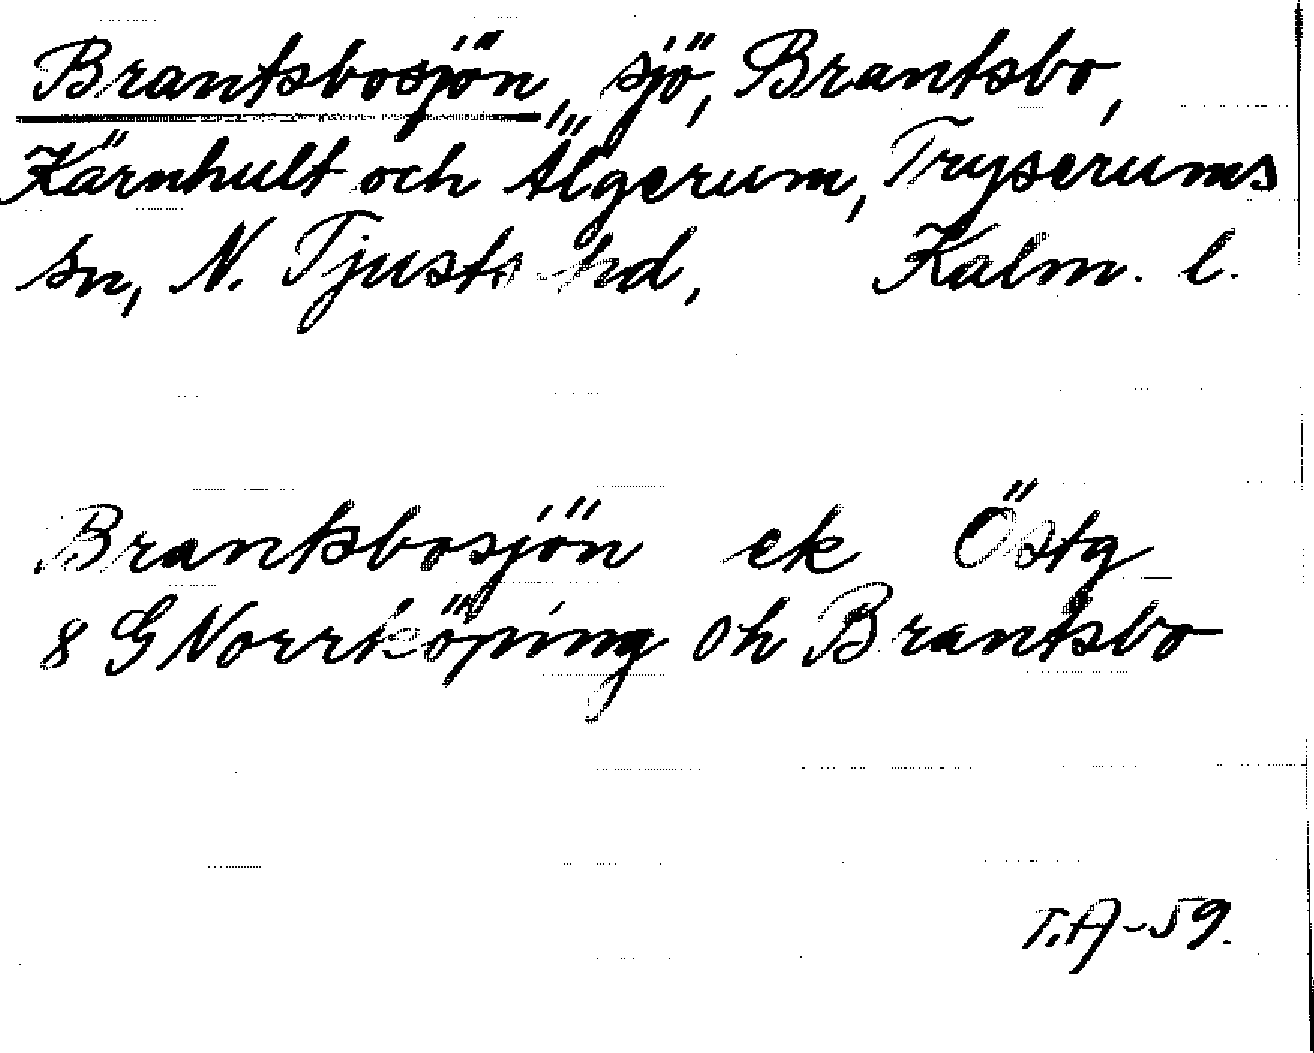 Brantsbosjön, sjö, Brantsbo,
Kärnhult och Älgerum, Tryserums
sn, N. Tjusts hd, Kalm. l.
Brantsbosjön ek Östg
8 G Norrköping Oh Brantsbo
T.A-59.